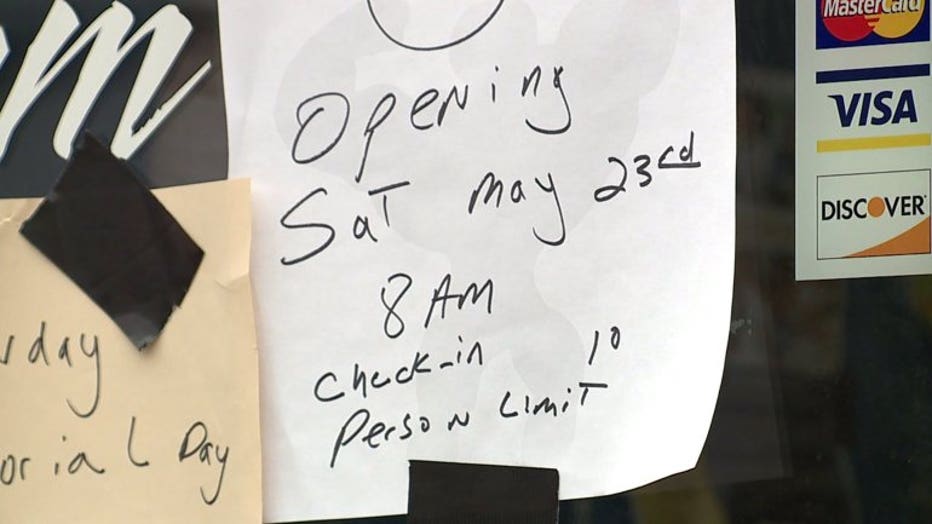 m
Opening
Sat May 23rd
8 AM
Check-in 10
Person Limit
day
orial Day
MasterCard
VISA
DISCOVER